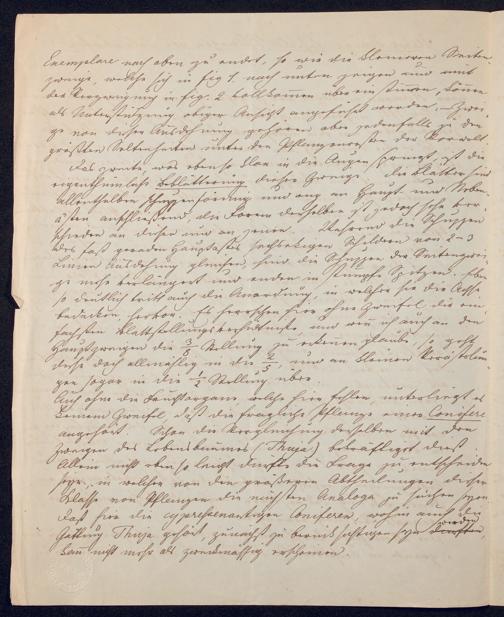 Exemplare nach oben zu endet, so wie die kleineren Seiten-
zweige, welche sich in Fig 1. nach unten zeigen und mit
der Verzweigung in Fig. 2 vollkommen übereinstimmen, können
als Unterstützung obiger Ansicht angeführt werden. Zwei-
ge von dieser Ausdehnung gehören aber jedenfalls zu den
größten Seltenheiten unter den Pflanzenresten der Vorwelt.
Das zweite, was ebenso klar in die Augen springt, ist die
eigenthümliche Beblätterung dieser Zweige. Die Blätter sind
allenthalben schuppenförmig und eng an Haupt- und Neben-
ästen anschließend, die Form derselben ist jedoch sehr ver-
schieden an diesen und an jenen. Während die Schuppen
des fast geraden Hauptastes sechseckigen Schildern von 2-3
Linien Ausdehnung gleichen, sind die Schuppen der Seitenzwei-
ge mehr verlängert und enden in stumpfe Spitzen. Eben
so deutlich tritt auch die Anordnung, in welcher sie die Axe
bedecken, hervor. Es herrschen hier ohne Zweifel die ein-
fachsten Blattstellungsverhältnisse, und wenn ich auch an den
Hauptzweigen die 3/8 Stellung zu erkennen glaube, so geht
diese doch allmählig in die 2/5 und an kleinen Verästelun-
gen sogar in die 1/2 Stellung über.
Auch ohne die Fruchtorgane, welche hier fehlen, unterliegt es
keinem Zweifel, daß die fragliche Pflanze einer Conifere
angehört. Schon die Vergleichung derselben mit den
Zweigen des Lebensbaumes (Thuja) bekräftiget dieß.
Allein nicht eben so leicht dürfte die Frage zu entscheiden
seyn, in welcher von den größeren Abtheilungen dieser
Klasse von Pflanzen die nächsten Analoga zu suchen seyen.
Daß hier die cypressenartigen Coniferen, wohin auch die
Gattung Thuja gehört, zunächst zu berücksichtigen seyn werden
kann nicht mehr als zweckmässig erscheinen.